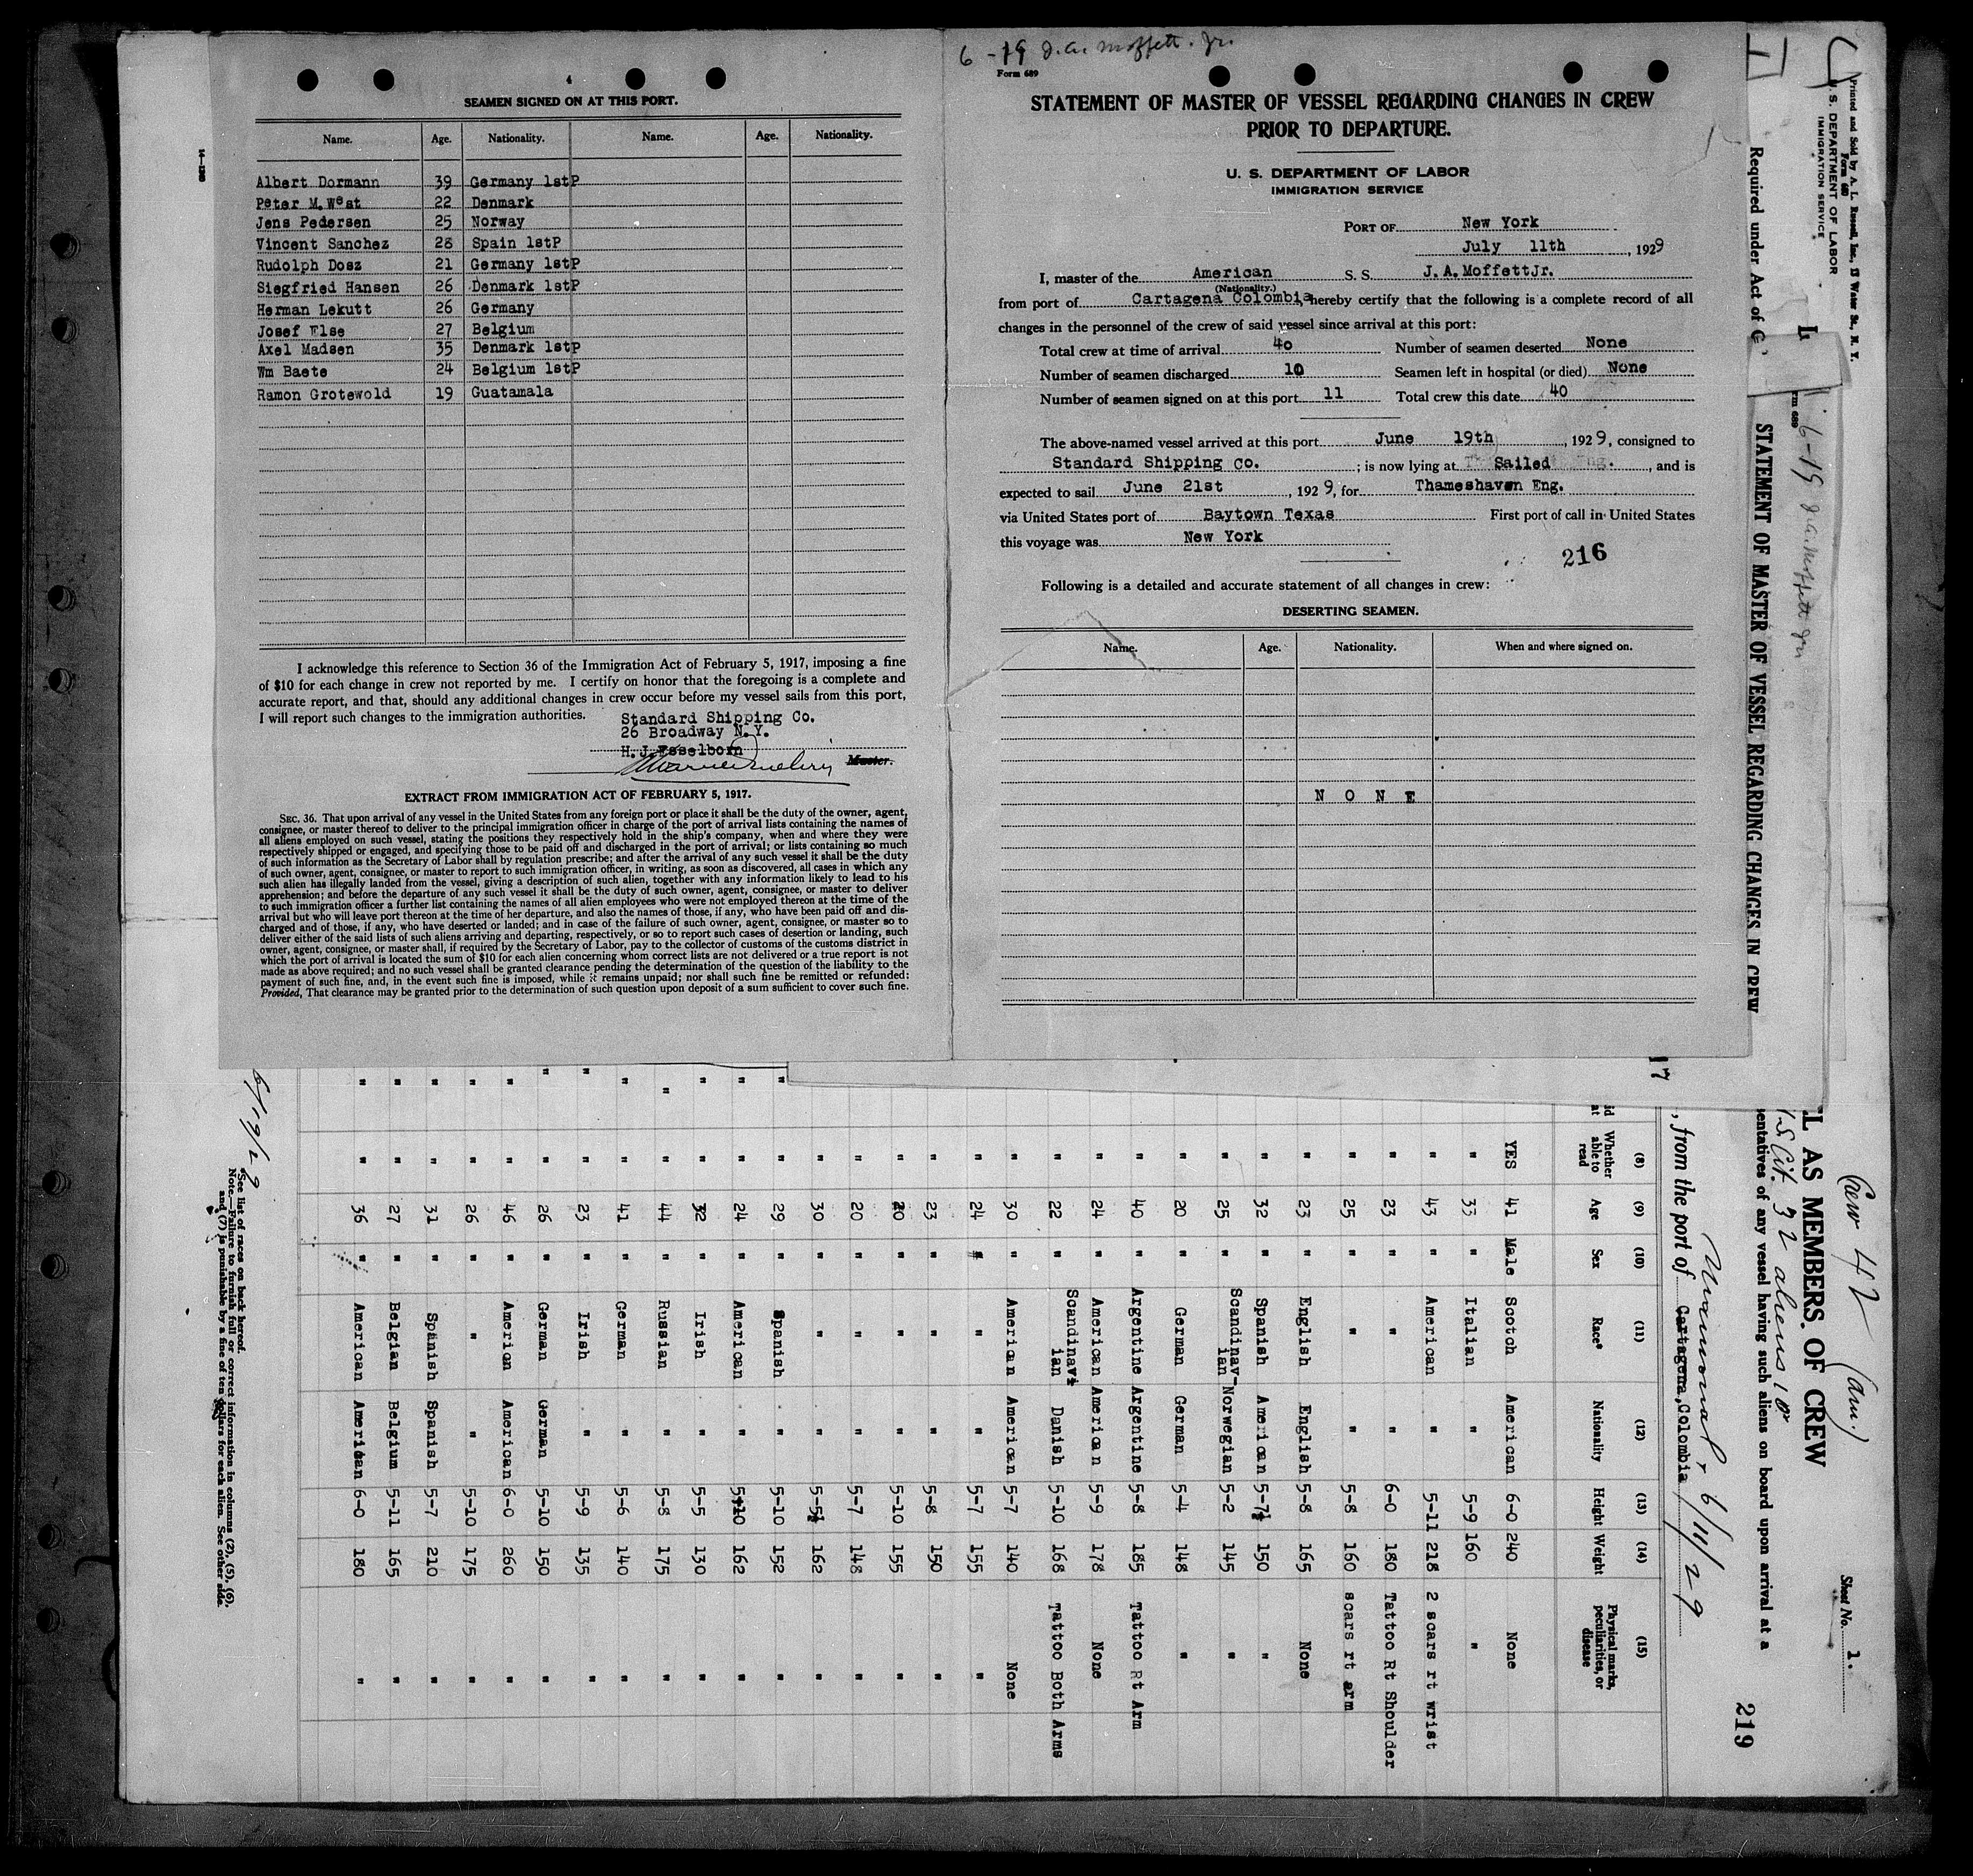 4
SEAMEN SIGNED ON AT THIS PORT.
Name. Age. Nationality. Name. Age. Nationality.
14—1260
Albert Dormann 39 Germany 1stP
Peter M.West 22 Denmark
Jens Pedersen 25 Norway
Vincent Sanchez 28 Spain 1stP
Rudolph Dosz 21 Germany 1stP
Siegfried Hansen 26 Denmark 1stP
Herman Lekutt 26 Germany
Josef Else 27 Belgium
Axel Madsen 35 Denmark 1stP
Wm Baete 24 Belgium 1stP
Ramon Grotewold 19 Guatamala
I acknowledge this reference to Section 36 of the Immigration Act of February 5, 1917, imposing a fine
of $10 for each change in crew not reported by me. I certify on honor that the foregoing is a complete and
accurate report, and that, should any additional changes in crew occur before my vessel sails from this port,
I will report such changes to the immigration authorities.
Standard Shipping Co.
26 Broadway N.Y.
H.J.Esselborn
Master.
EXTRACT FROM IMMIGRATION ACT OF FEBRUARY 5, 1917.
SEC. 36. That upon arrival of any vessel in the United States from any foreign port or place it shall be the duty of the owner, agent,
consignee, or master thereof to deliver to the principal immigration officer in charge of the port of arrival lists containing the names of
all aliens employed on such vessel, stating the positions they respectively hold in the ship's company, when and where they were
respectively shipped or engaged, and specifying those to be paid off and discharged in the port of arrival; or lists containing so much
of such information as the Secretary of Labor shall by regulation prescribe; and after the arrival of any such vessel it shall be the duty
of such owner, agent, consignee, or master to report to such immigration officer, in writing, as soon as discovered, all cases in which any
such alien has illegally landed from the vessel, giving a description of such alien, together with any information likely to lead to his
apprehension; and before the departure of any such vessel it shall be the duty of such owner, agent, consignee, or master to deliver
to such immigration officer a further list containing the names of all alien employees who were not employed thereon at the time of the
arrival but who will leave port thereon at the time of her departure, and also the names of those, if any, who have been paid off and dis-
charged and of those, if any, who have deserted or landed; and in case of the failure of such owner, agent, consignee, or master so to
deliver either of the said lists of such aliens arriving and departing, respectively, or so to report such cases of desertion or landing, such
owner, agent, consignee, or master shall, if required by the Secretary of Labor, pay to the collector of customs of the customs district in
which the port of arrival is located the sum of $10 for each alien concerning whom correct lists are not delivered or a true report is not
made as above required; and no such vessel shall be granted clearance pending the determination of the question of the liability to the
payment of such fine, and, in the event such fine is imposed, while it remains unpaid; nor shall such fine be remitted or refunded:
Provided, That clearance may be granted prior to the determination of such question upon deposit of a sum sufficient to cover such fine.
6-19 J.A. Moffett. Jr.
Form 689
STATEMENT OF MASTER OF VESSEL REGARDING CHANGES IN CREW
PRIOR TO DEPARTURE.
U. S. DEPARTMENT OF LABOR
IMMIGRATION SERVICE
PORT OF New York
July 11th, 1929
I, master of the American S. S. J.A.MoffettJr.
(Nationality.)
from port of Cartagena Colombia, hereby certify that the following is a complete record of all
changes in the personnel of the crew of said vessel since arrival at this port:
Total crew at time of arrival 40 Number of seamen deserted None
Number of seamen discharged 10 Seamen left in hospital (or died) None
Number of seamen signed on at this port 11 Total crew this date 40
The above-named vessel arrived at this port June 19th, 1929, consigned to
Standard Shipping Co.; is now lying at Sailed, and is
expected to sail June 21st, 1929, for Thameshaven Eng.
via United States port of Baytown Texas First port of call in United States
this voyage was New York
216
Following is a detailed and accurate statement of all changes in crew:
DESERTING SEAMEN.
Name. Age. Nationality. When and where signed on.
N O N E
Printed and Sold by A. L. Russell, Inc., 13 Water St., N. Y.
Form 680
U. S. DEPARTMENT OF LABOR
IMMIGRATION SERVICE
Required under Act of
6-19 J.A. Moffett Jr.
STATEMENT OF MASTER OF VESSEL REGARDING CHANGES IN CREW
Crew 42 (Am.)
Sheet No. 1.
L AS MEMBERS OF CREW
US Cit. 32 aliens 10
sentatives of any vessel having such aliens on board upon arrival at a
219
17
, from the port of Cartagena,Colombia 6/11/29
(8) (9) (10) (11) (12) (13) (14) (15)
Whether able to read Age Sex Race* Nationality Height Weight Physical marks, peculiarities, or disease
YES 41 Male Scotch American 6-0 240 None
" 33 " Italian " 5-9 160 "
" 43 " American " 5-11 218 2 scars rt wrist
" 23 " " " 6-0 180 Tattoo Rt Shoulder
" 25 " " " 5-8 160 scars rt arm
" 23 " English English 5-8 165 None
" 32 " Spanish American 5-7½ 150 "
" 25 " Scandinav-ian Norwegian 5-2 145 "
" 20 " German German 5-4 148 "
" 40 " Argentine Argentine 5-8 185 Tattoo Rt Arm
" 24 " American American 5-9 178 None
" 22 " Scandinavian Danish 5-10 168 Tattoo Both Arms
" 30 " American American 5-7 140 None
" 24 " " " 5-7 155 "
" 23 " " " 5-8 150 "
" 20 " " " 5-10 155 "
" 20 " " " 5-7 148 "
" 30 " " " 5-5½ 162 "
" 29 " Spanish " 5-10 152 "
" 24 " American " 5-10 162 "
" 32 " Irish " 5-5 130 "
" 44 " Russian " 5-8 175 "
" 41 " German " 5-6 140 "
" 23 " Irish " 5-9 135 "
" 26 " German German 5-10 150 "
" 46 " American American 6-0 260 "
" 26 " " " 5-10 175 "
" 31 " Spanish Spanish 5-7 210 "
" 27 " Belgian Belgium 5-11 165 "
" 36 " American American 6-0 180 "
6/19/29
*See list of races on back hereof.
Note.—Failure to furnish full or correct information in columns (2), (5), (6),
and (7) is punishable by a fine of ten dollars for each alien. See other side.